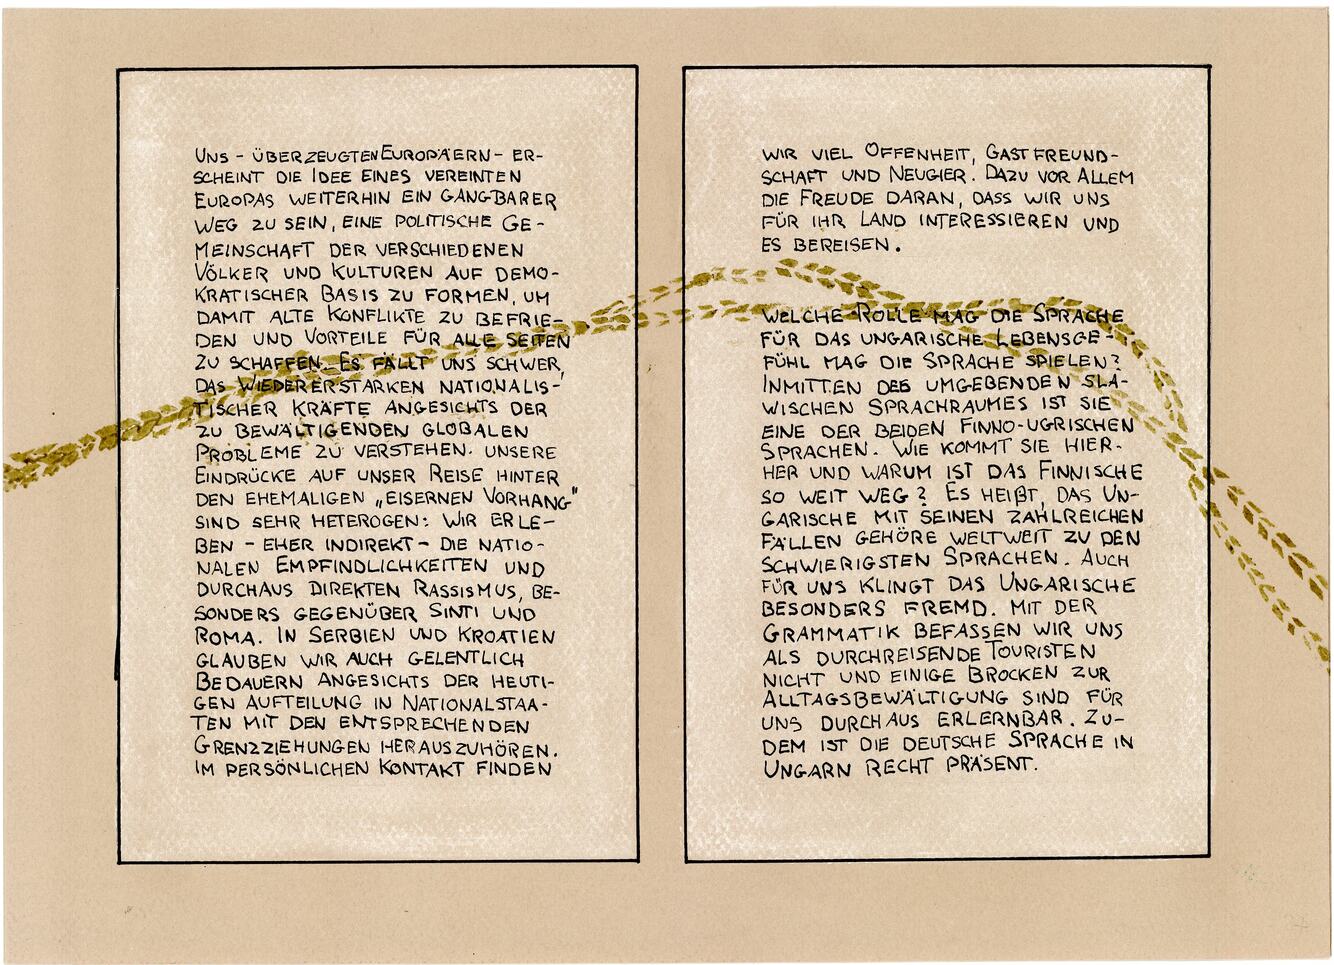 UNS - ÜBERZEUGTEN EUROPÄERN - ER-
SCHEINT DIE IDEE EINES VEREINTEN
EUROPAS WEITERHIN EIN GANGBARER
WEG ZU SEIN, EINE POLITISCHE GE-
MEINSCHAFT DER VERSCHIEDENEN
VÖLKER UND KULTUREN AUF DEMO-
KRATISCHER BASIS ZU FORMEN, UM
DAMIT ALTE KONFLIKTE ZU BEFRIE-
DEN UND VORTEILE FÜR ALLE SEITEN
ZU SCHAFFEN. ES FÄLLT UNS SCHWER,
DAS WIEDERERSTARKEN NATIONALIS-
TISCHER KRÄFTE ANGESICHTS DER
ZU BEWÄLTIGENDEN GLOBALEN
PROBLEME ZU VERSTEHEN. UNSERE
EINDRÜCKE AUF UNSER REISE HINTER
DEN EHEMALIGEN „EISERNEN VORHANG"
SIND SEHR HETEROGEN: WIR ERLE-
BEN - EHER INDIREKT - DIE NATIO-
NALEN EMPFINDLICHKEITEN UND
DURCHAUS DIREKTEN RASSISMUS, BE-
SONDERS GEGENÜBER SINTI UND
ROMA. IN SERBIEN UND KROATIEN
GLAUBEN WIR AUCH GELENTLICH
BEDAUERN ANGESICHTS DER HEUTI-
GEN AUFTEILUNG IN NATIONALSTAA-
TEN MIT DEN ENTSPRECHENDEN
GRENZZIEHUNGEN HERAUSZUHÖREN.
IM PERSÖNLICHEN KONTAKT FINDEN
WIR VIEL OFFENHEIT, GASTFREUND-
SCHAFT UND NEUGIER. DAZU VOR ALLEM
DIE FREUDE DARAN, DASS WIR UNS
FÜR IHR LAND INTERESSIEREN UND
ES BEREISEN.
WELCHE ROLLE MAG DIE SPRACHE
FÜR DAS UNGARISCHE LEBENSGE-
FÜHL MAG DIE SPRACHE SPIELEN?
INMITTEN DES UMGEBENDEN SLA-
WISCHEN SPRACHRAUMES IST SIE
EINE DER BEIDEN FINNO-UGRISCHEN
SPRACHEN. WIE KOMMT SIE HIER-
HER UND WARUM IST DAS FINNISCHE
SO WEIT WEG? ES HEIßT, DAS UN-
GARISCHE MIT SEINEN ZAHLREICHEN
FÄLLEN GEHÖRE WELTWEIT ZU DEN
SCHWIERIGSTEN SPRACHEN. AUCH
FÜR UNS KLINGT DAS UNGARISCHE
BESONDERS FREMD. MIT DER
GRAMMATIK BEFASSEN WIR UNS
ALS DURCHREISENDE TOURISTEN
NICHT UND EINIGE BROCKEN ZUR
ALLTAGSBEWÄLTIGUNG SIND FÜR
UNS DURCHAUS ERLERNBAR. ZU-
DEM IST DIE DEUTSCHE SPRACHE IN
UNGARN RECHT PRÄSENT.